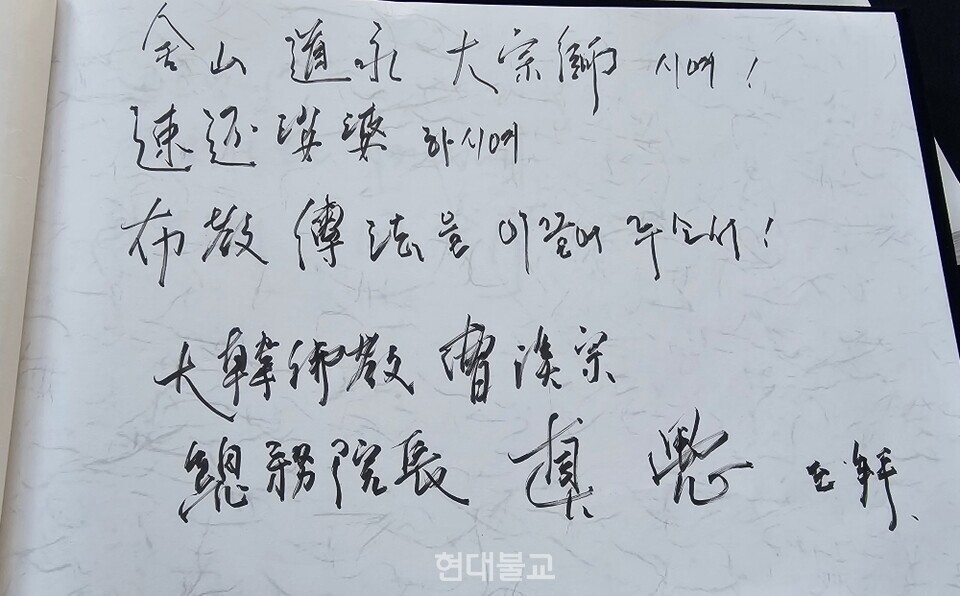 金山 道永 大宗師 시여!
速還娑婆 하시여
布敎 傳法을 이끌어 주소서!
大韓佛敎 曹溪宗
總務院長 眞愚 三拜
현대불교